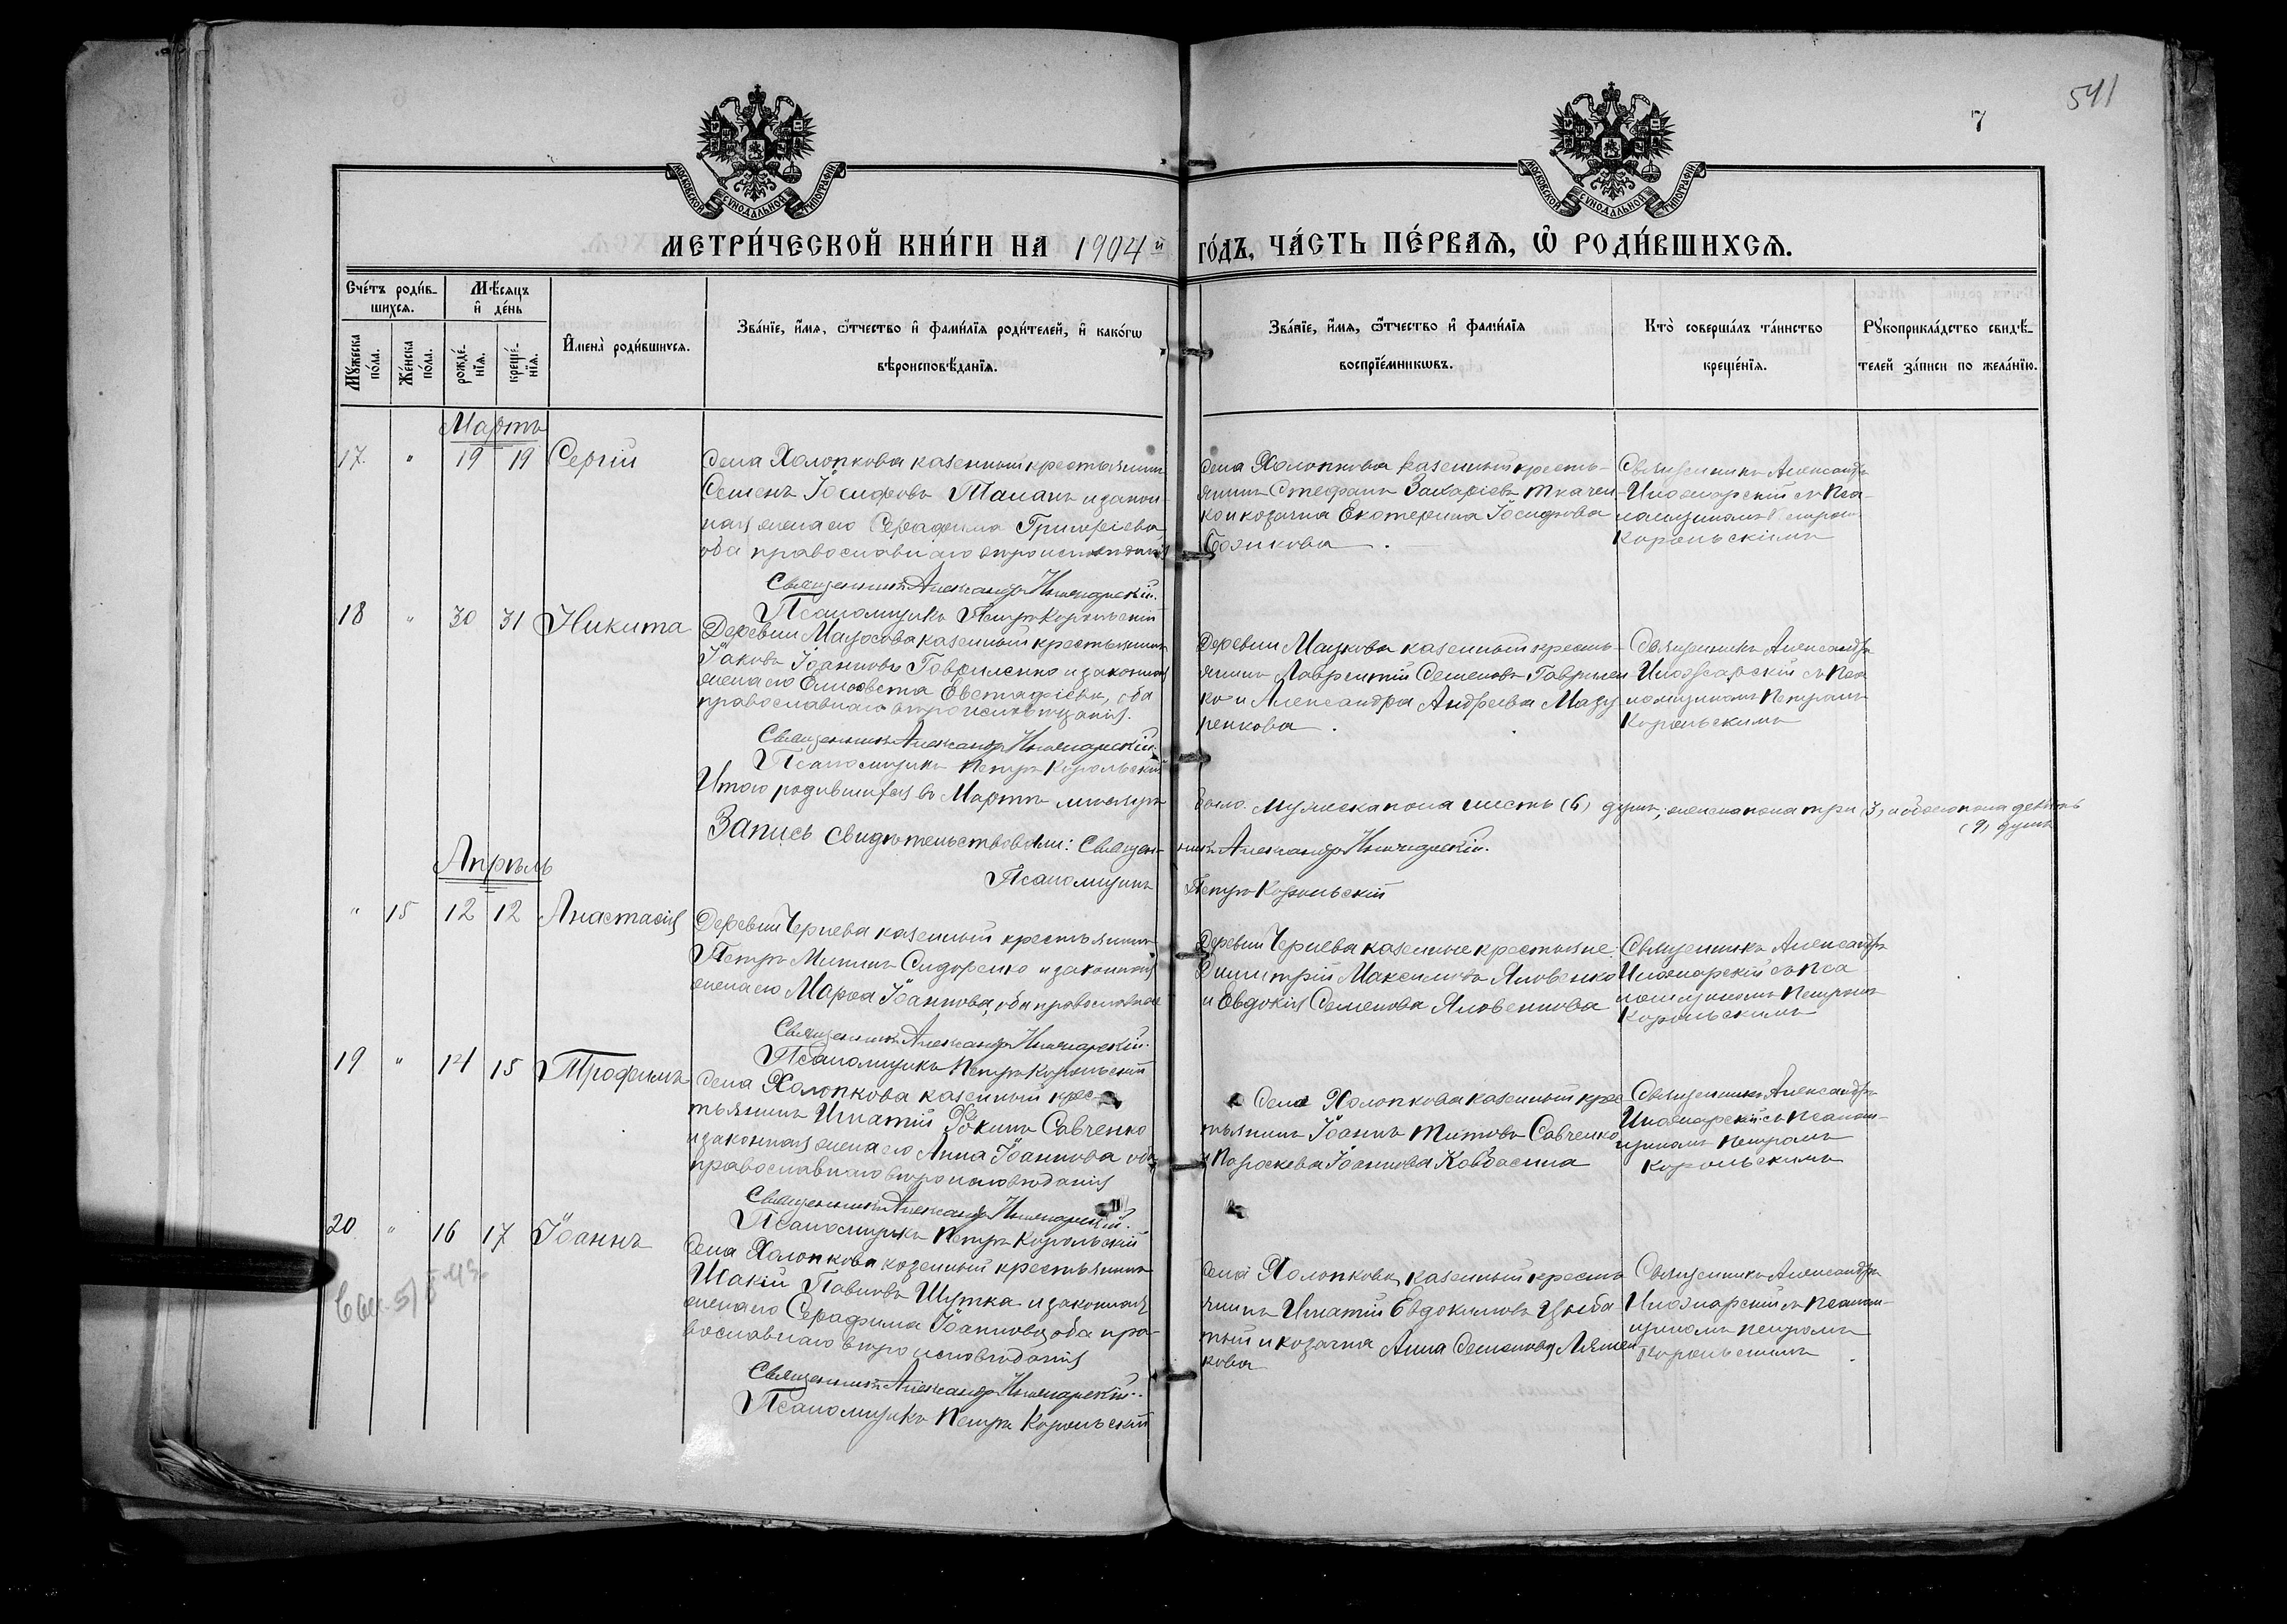 541
7
МОСКОВСКОЙ СѴНОДАЛЬНОЙ ТИПОГРАФІИ
МОСКОВСКОЙ СѴНОДАЛЬНОЙ ТИПОГРАФІИ
МЕТРИ́ЧЕСКОЙ КНИ́ГИ НА 1904й ГО́ДЪ, ЧА́СТЬ ПЕ́РВАѦ, Ѡ҆ РОДИ́ВШИХСѦ.
Сче́тъ роди́в-
шихсѧ.
Мꙋ́жеска по́ла.
Же́нска по́ла.
Мѣ́сѧцъ
и҆ де́нь
рожде́-нїѧ.
креще́-нїѧ.
И҆мена̀ роди́вшихсѧ.
Зва́нїе, и҆́мѧ, ѻ҆́тчество и҆ фами́лїѧ роди́телей, и҆ како́гѡ
вѣроисповѣ́данїѧ.
Зва́нїе, и҆́мѧ, ѻ҆́тчество и҆ фами́лїѧ
воспрїе́мникѡвъ.
Кто̀ соверша́лъ та́инство
креще́нїѧ.
Рꙋкоприкла́дство свидѣ́-
телей за́писи по жела́нїю.
Мартъ
17. " 19 19 Сергій
Села Холопкова казенный крестьянинъ
Семенъ Іосифовъ Таланъ и закон-
ная жена его Серафима Григорьева,
оба православнаго вѣроисповѣданія
Священникъ Александръ
Псаломщикъ Петръ Корольскій
Села Холопкова казенный кресть-
янинъ Стефанъ Захаріевъ Ткачен-
ко и козачка Екатерина Іосифова
Божкова.
Священникъ Александръ
съ Пса-
ломщикомъ Петромъ
Корольскимъ
18 " 30 31 Никита
Деревни казенный крестьянинъ
Іаковъ Іоанновъ Гавриленко и законная
жена его Елисавета Евстафіева, оба
православнаго вѣроисповѣданія.
Священникъ Александръ
Псаломщикъ Петръ Корольскій
Деревни казенный кресть-
янинъ Лаврентій Семеновъ Гаврилен
ко и Александра Андреева Мазу
ренкова.
Священникъ Александръ
съ Пса
ломщикомъ Петромъ
Корольскимъ
Итого родившихся въ Мартѣ мѣсяцѣ было: мужеска пола шесть (6) душъ, женска пола три (3) и обоего пола девять
(9) душъ
Запись свидѣтельствовали: Священ-никъ Александръ
Псаломщикъ Петръ Корольскій
Апрѣль
" 15 12 12 Анастасія
Деревни Чернева казенный крестьянинъ
Петръ Мининъ Сидоренко и законная
жена его Марѳа Іоаннова, оба православные
Священникъ Александръ
Псаломщикъ Петръ Корольскій
Деревни Чернева казенные крестьяне
Димитрій Максимовъ Яловенко
и Евдокія Семенова Яловенкова
Священникъ Александръ
съ Пса
ломщикомъ Петромъ
Корольскимъ
19 " 14 15 Трофимъ
Села Холопкова казенный крес-
тьянинъ Игнатій Ѳокинъ Савченко
и законная жена его Анна Іоаннова оба
православнаго вѣроисповѣданія
Священникъ Александръ
Псаломщикъ Петръ Корольскій
Села Холопкова казенный крес
тьянинъ Іоаннъ Титовъ Савченко
и Параскева Іоаннова Ковбасина
Священникъ Александръ
съ Псалом-
щикомъ Петромъ
Корольскимъ
20 " 16 17 Іоаннъ
Села Холопкова козенный крестьянинъ
Павловъ Шутка и законная
жена его Серафима Іоаннова, оба пра-
вославнаго вѣроисповѣданія
Священникъ Александръ
Псаломщикъ Петръ Корольскій
Села Холопкова казенный кресть
янинъ Игнатій Евдокимовъ Цыба
тый и козачка Анна Семенова Лямен
кова
Священникъ Александръ
съ Псалом-
щикомъ Петромъ
Корольскимъ